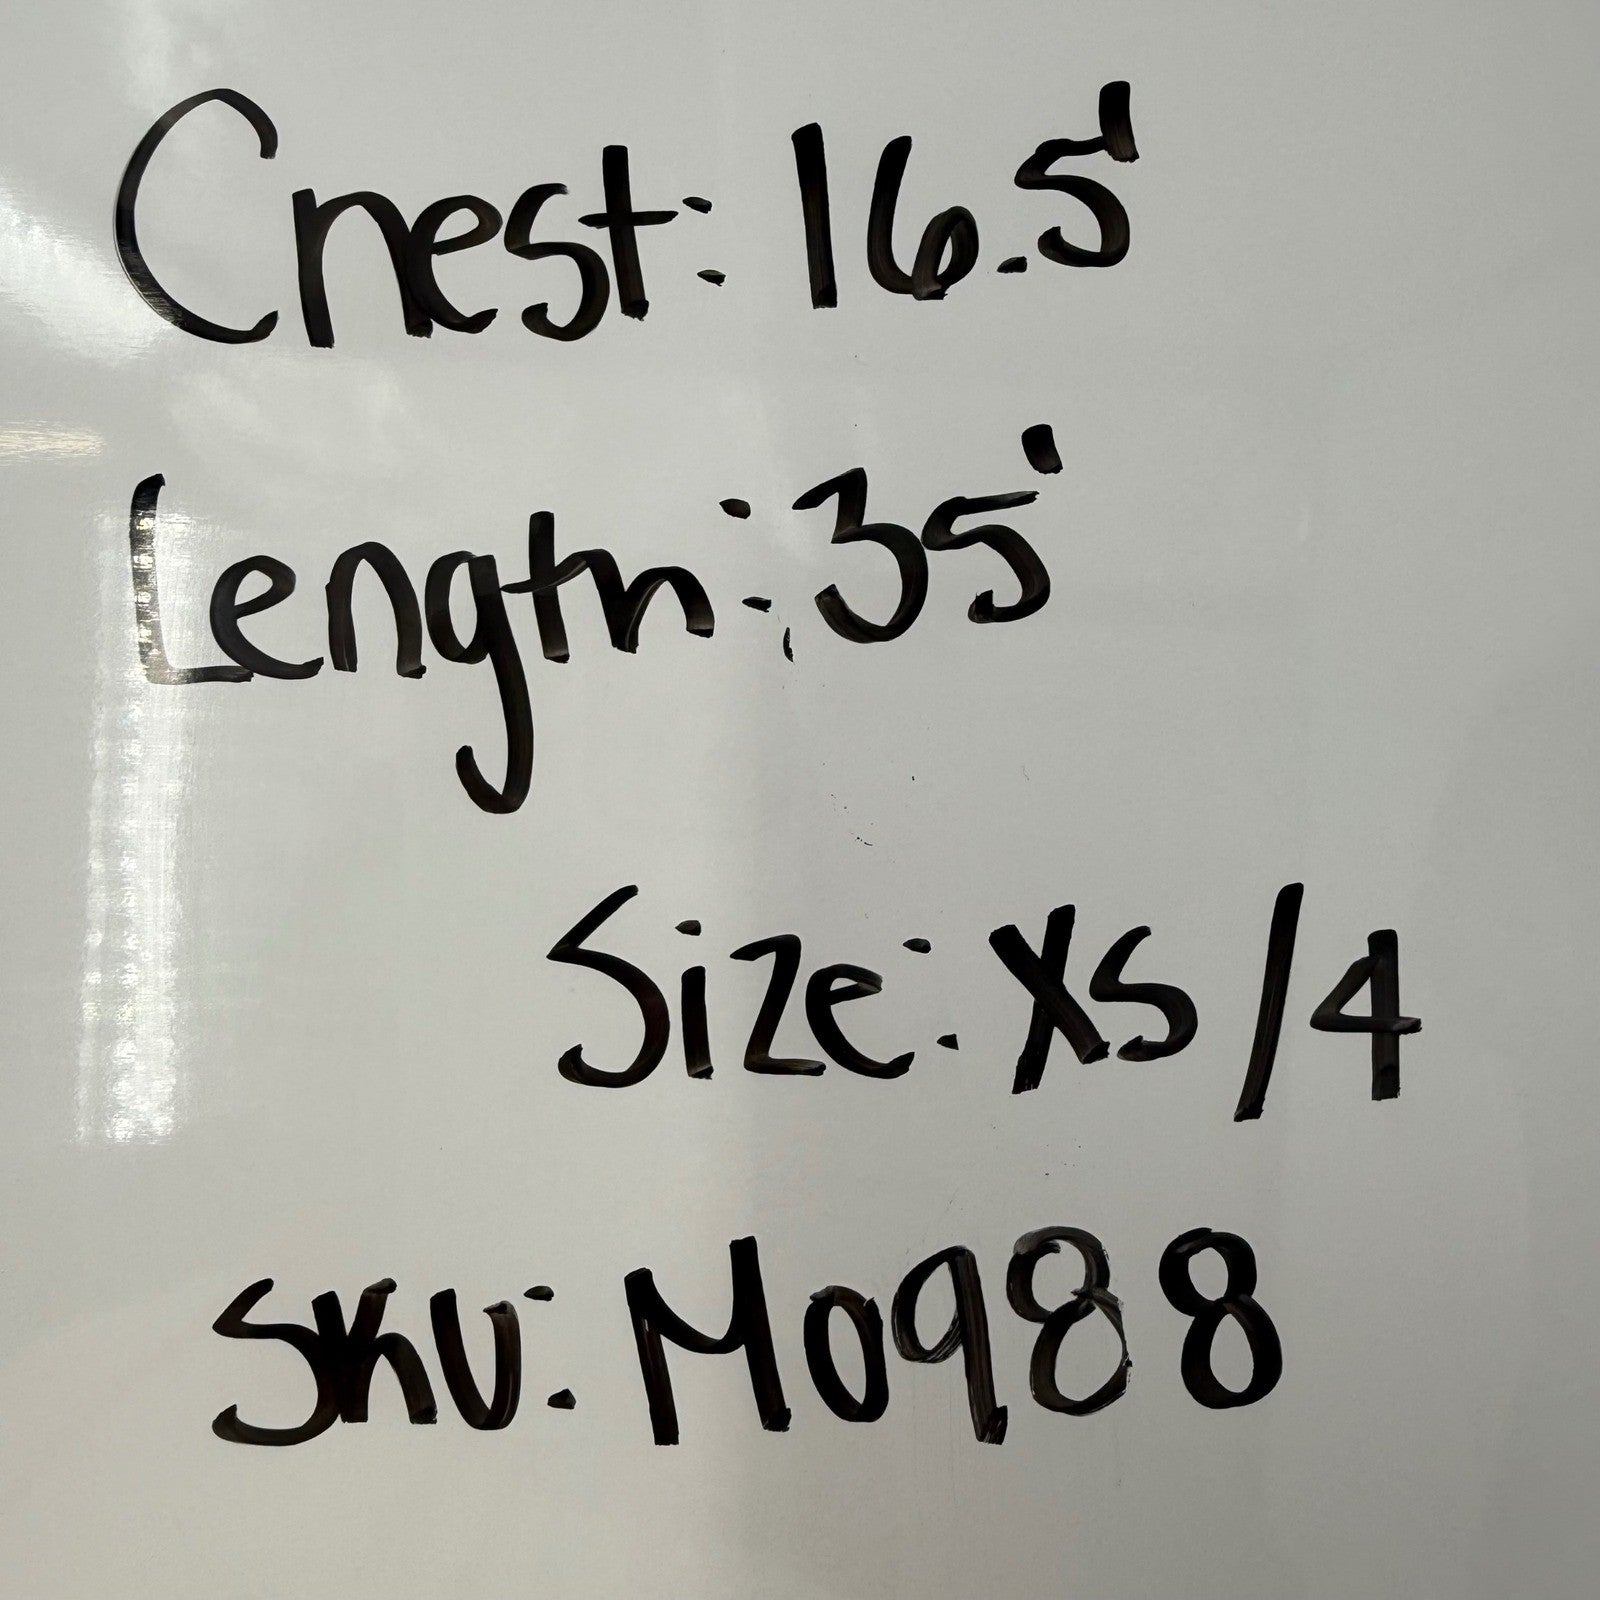 Chest: 16.5'
Length: 35'
Size: XS/4
SKU: M0988